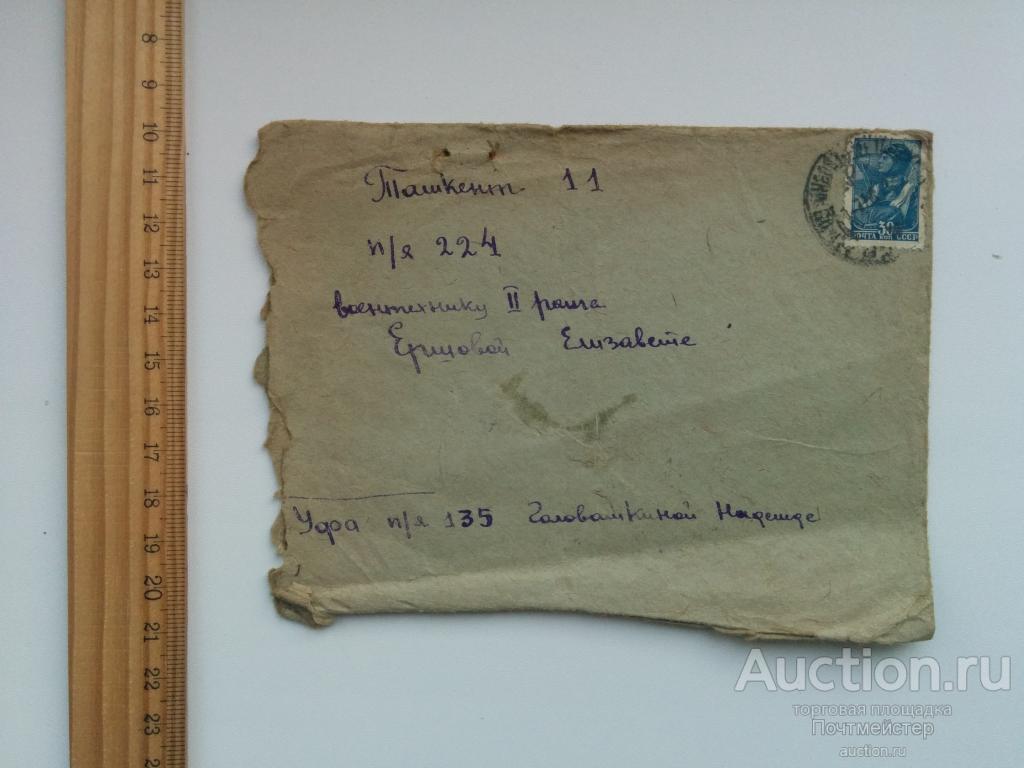 8
9
10
11
12
13
14
15
16
17
18
19
20
21
22
23
Ташкент 11
п/я 224
воентехнику II ранга
Ершовой Елизавете
Уфа п/я 135 Головашкиной Надежде
30
ПОЧТА КОП СССР
Auction.ru
торговая площадка
Почтмейстер
auction.ru